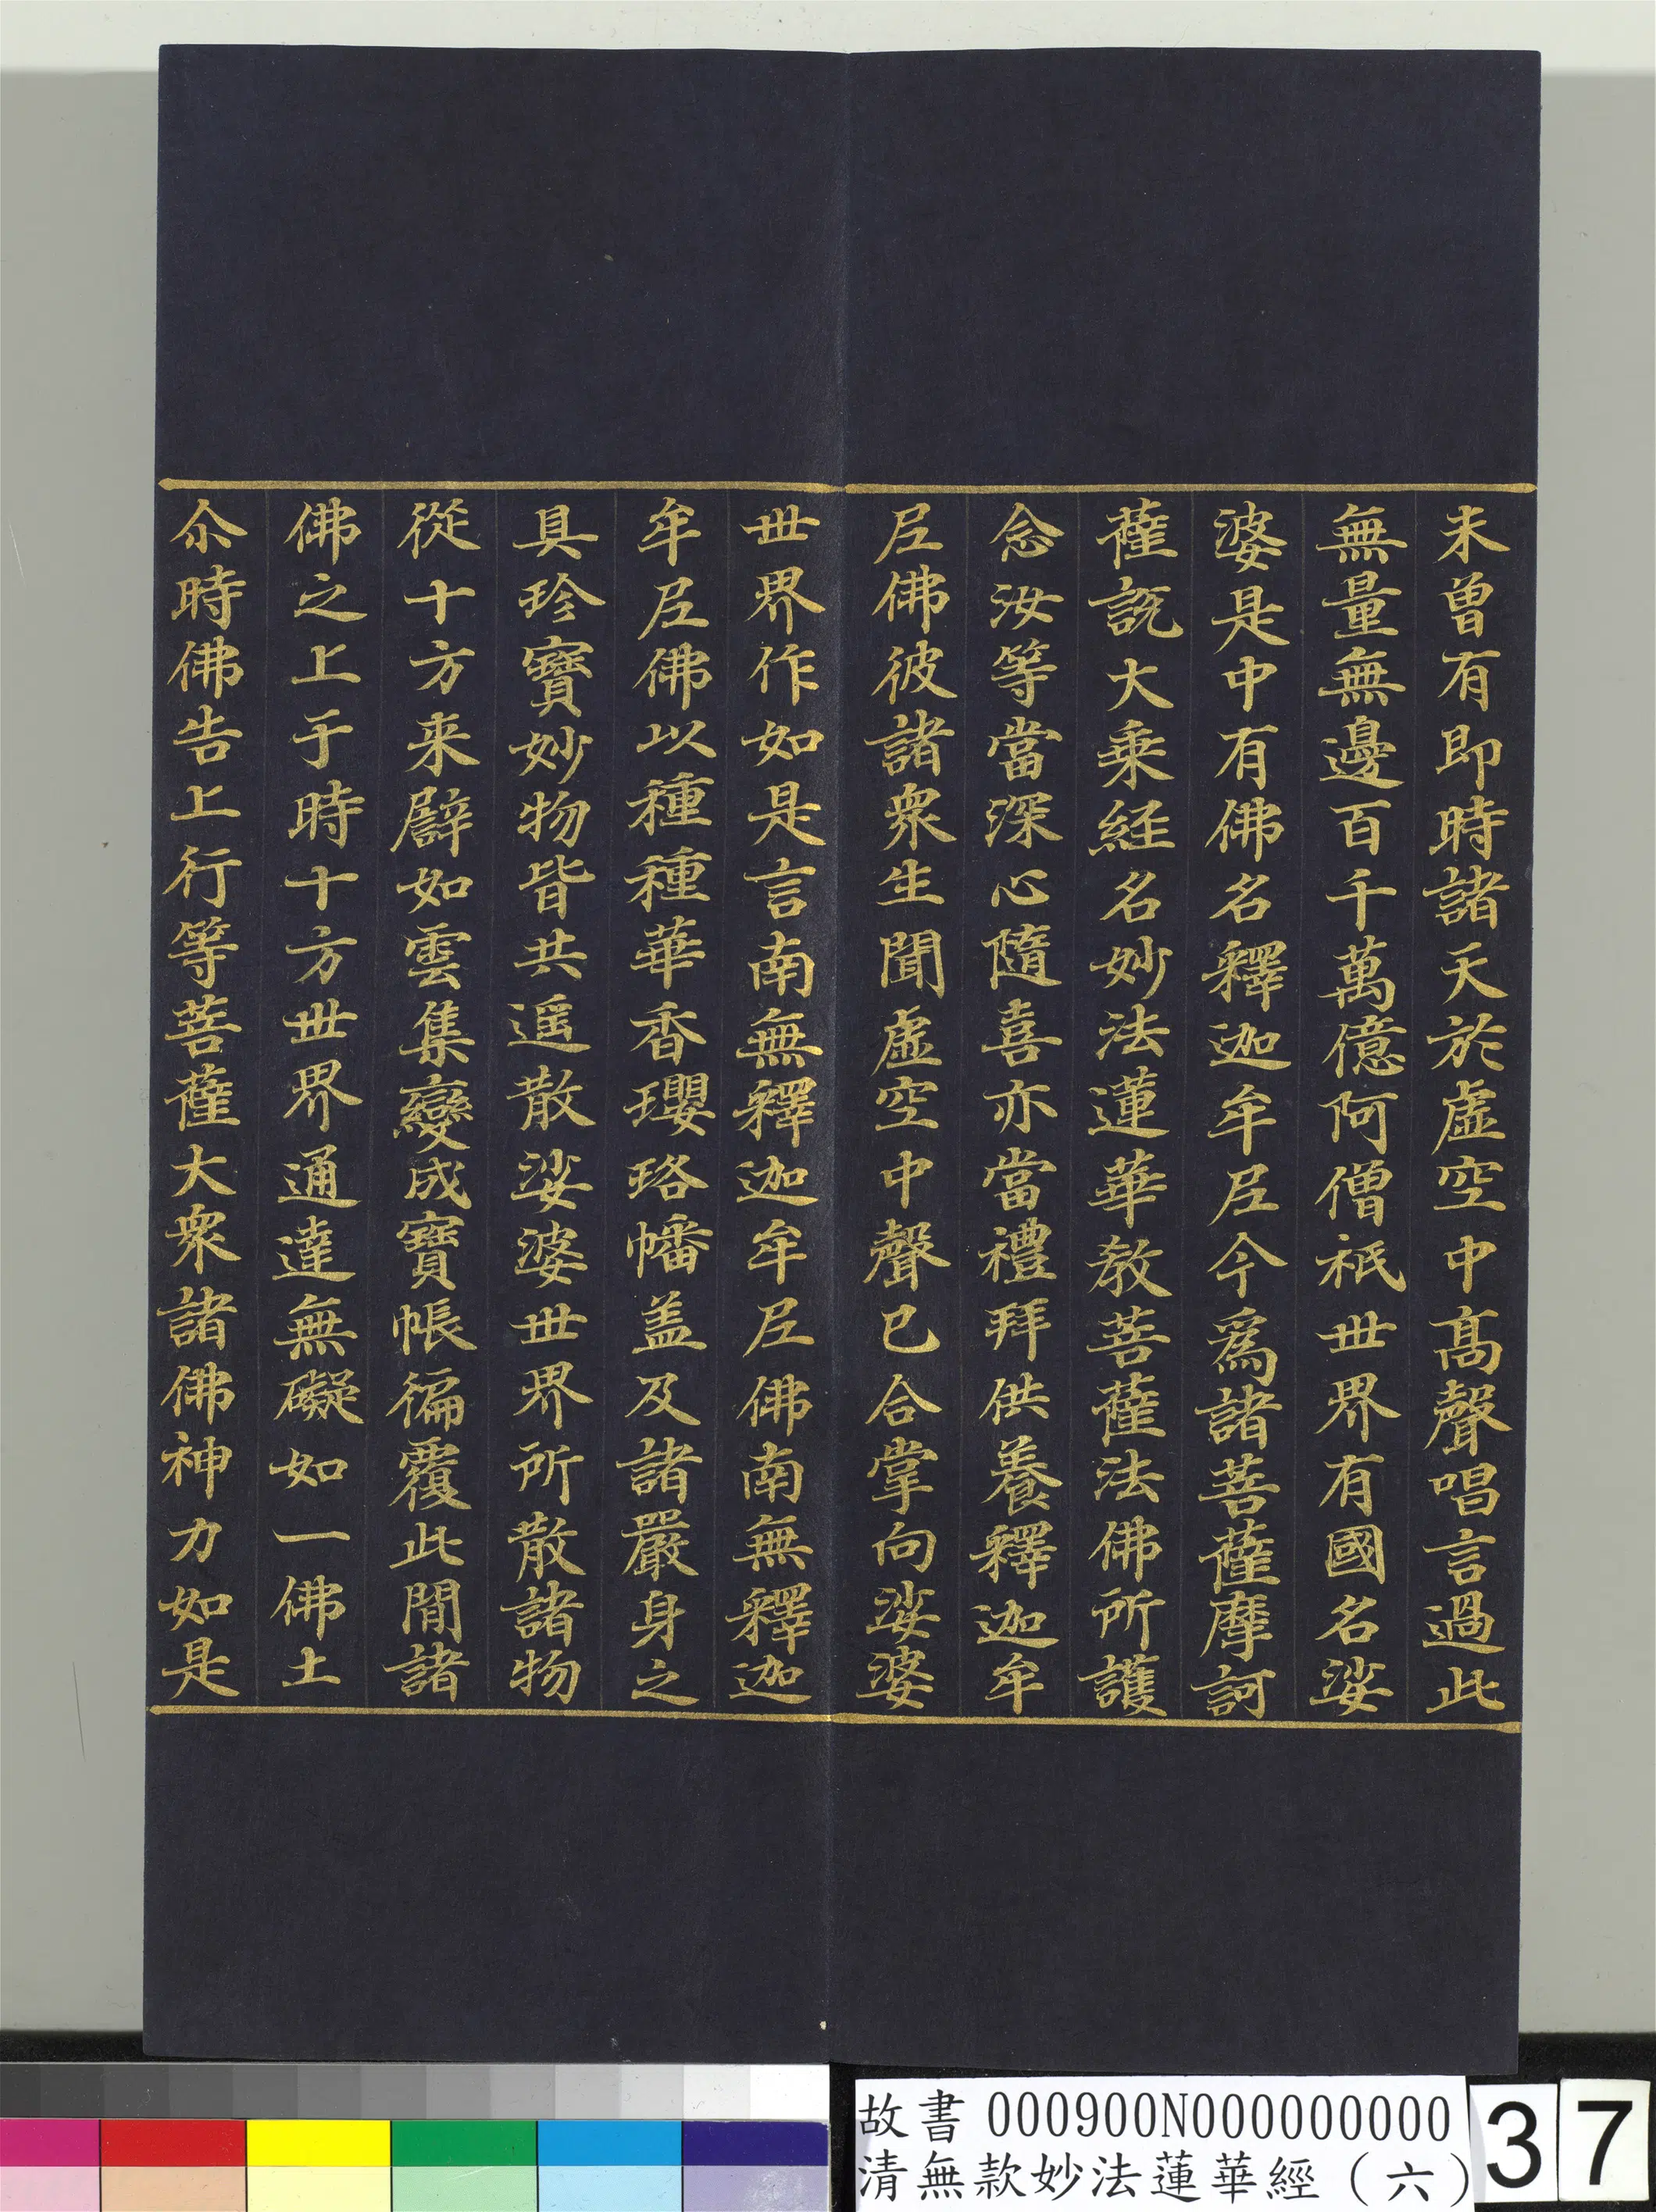 未曾有即時諸天於虛空中髙聲唱言過此
無量無邊百千萬億阿僧祇世界有國名娑
婆是中有佛名釋迦牟尼今爲諸菩薩摩訶
薩説大乗経名妙法蓮華教菩薩法佛所護
念汝等當深心隨喜亦當禮拜供養釋迦牟
尼佛彼諸衆生聞虛空中聲已合掌向娑婆
世界作如是言南無釋迦牟尼佛南無釋迦
牟尼佛以種種華香瓔珞幡盖及諸嚴身之
具珍寶妙物皆共遥散娑婆世界所散諸物
從十方来譬如雲集變成寶帳徧覆此間諸
佛之上于時十方世界通達無礙如一佛土
尒時佛告上行等菩薩大衆諸佛神力如是
故書 000900N000000000 37
清無款妙法蓮華經（六）